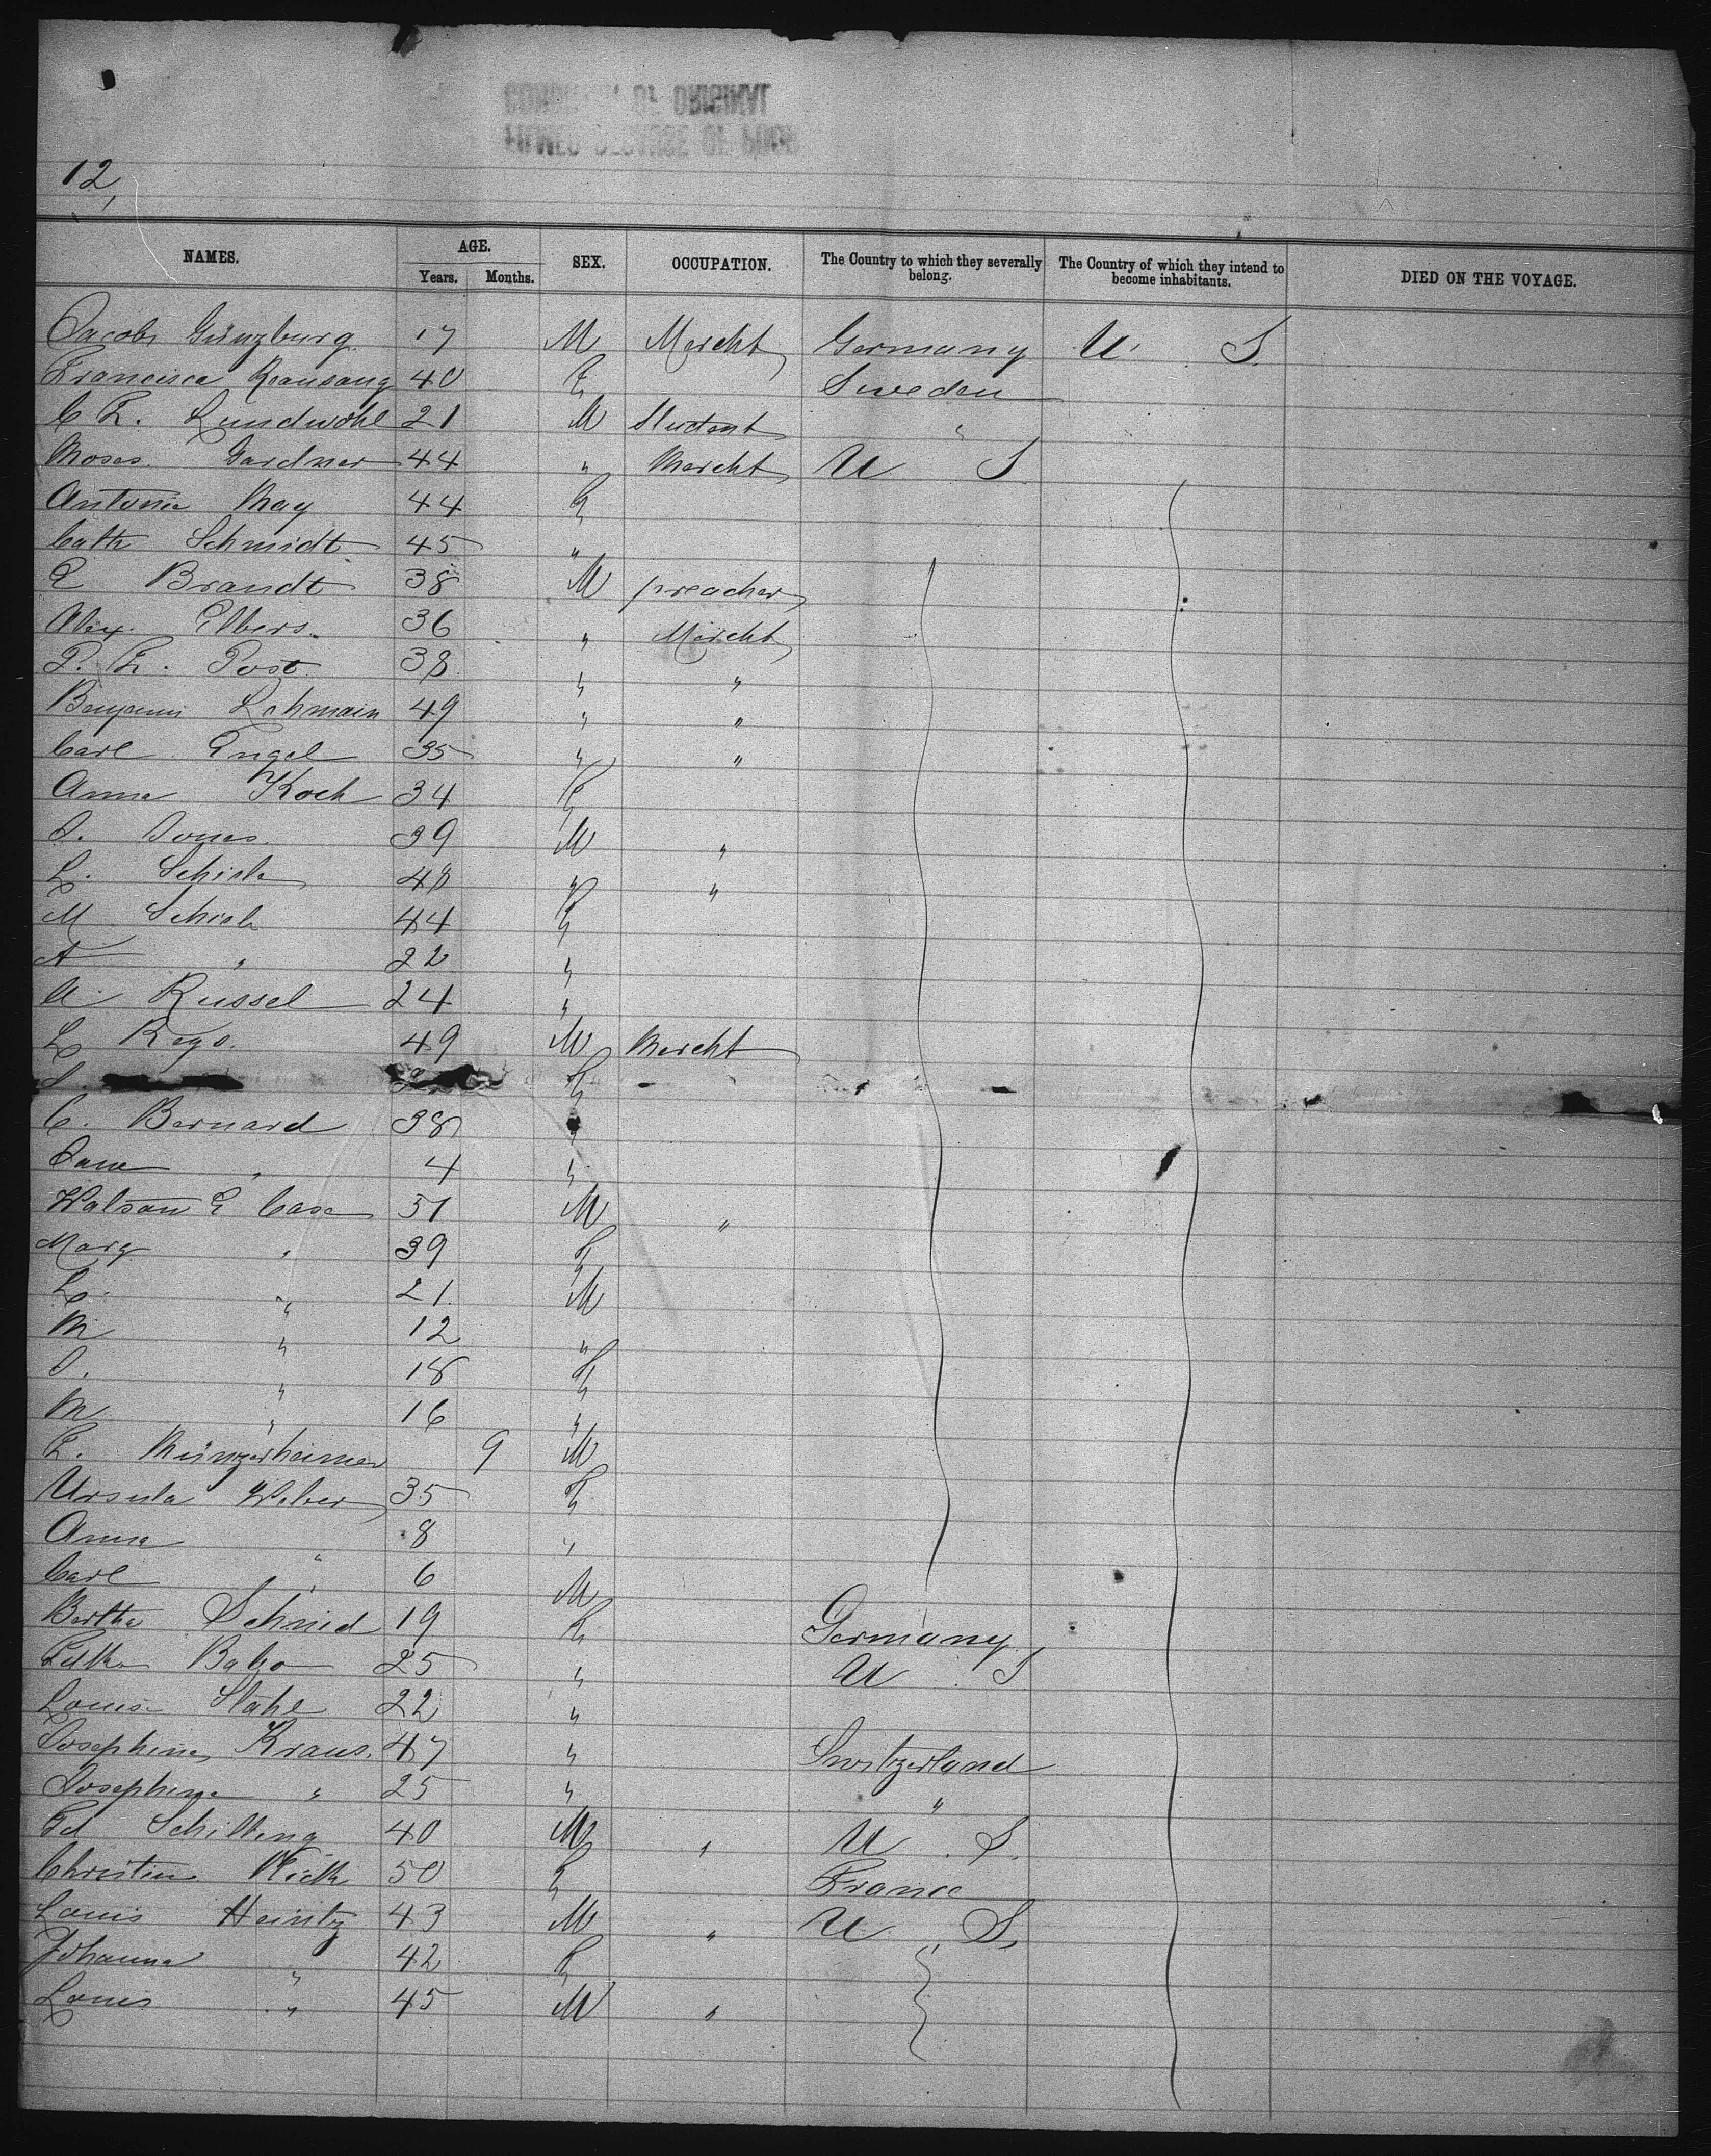 12,
NAMES. AGE. SEX. OCCUPATION. The Country to which they severally belong. The Country of which they intend to become inhabitants. DIED ON THE VOYAGE.
Years. Months.
Jacob Günzburg 17 M Mercht Germany U. S.
Francisca 40 F Sweden
C F. Lundwohl 21 M Student "
Moses Gardner 44 " Mercht U S
Antonie May 44 F
Cath Schmidt 45 "
E Brandt 38 M preacher
Alex. Elbers 36 " Mercht
P. F. Post 38 " "
Benjamin Lehmain 49 " "
Carl Engel 35 " "
Anna Koch 34 F
J. Jones 39 M "
L. 48 " "
M 44 F
A " 22 "
A. Russel 24 "
L Rego. 49 M Mercht
F
C. Bernard 38 "
Jane " 4 "
Watson E Case 51 M "
Marg " 39 F
L. " 21 M
M " 12 "
J. " 18 F
M " 16 "
F. Münzesheimer 9 M
Ursula Weber 35 F
Anna " 8 "
Carl " 6 M
Bertha Schmid 19 F Germany
25 " U S
Louise Stahl 22 "
Josephine Kraus. 47 " Switzerland
Josephine " 25 " "
Fd Schilling 40 M " U. S.
Christine 50 F France
Louis Heintz 43 M " U S,
Johanna " 42 F
Louis " 45 M "